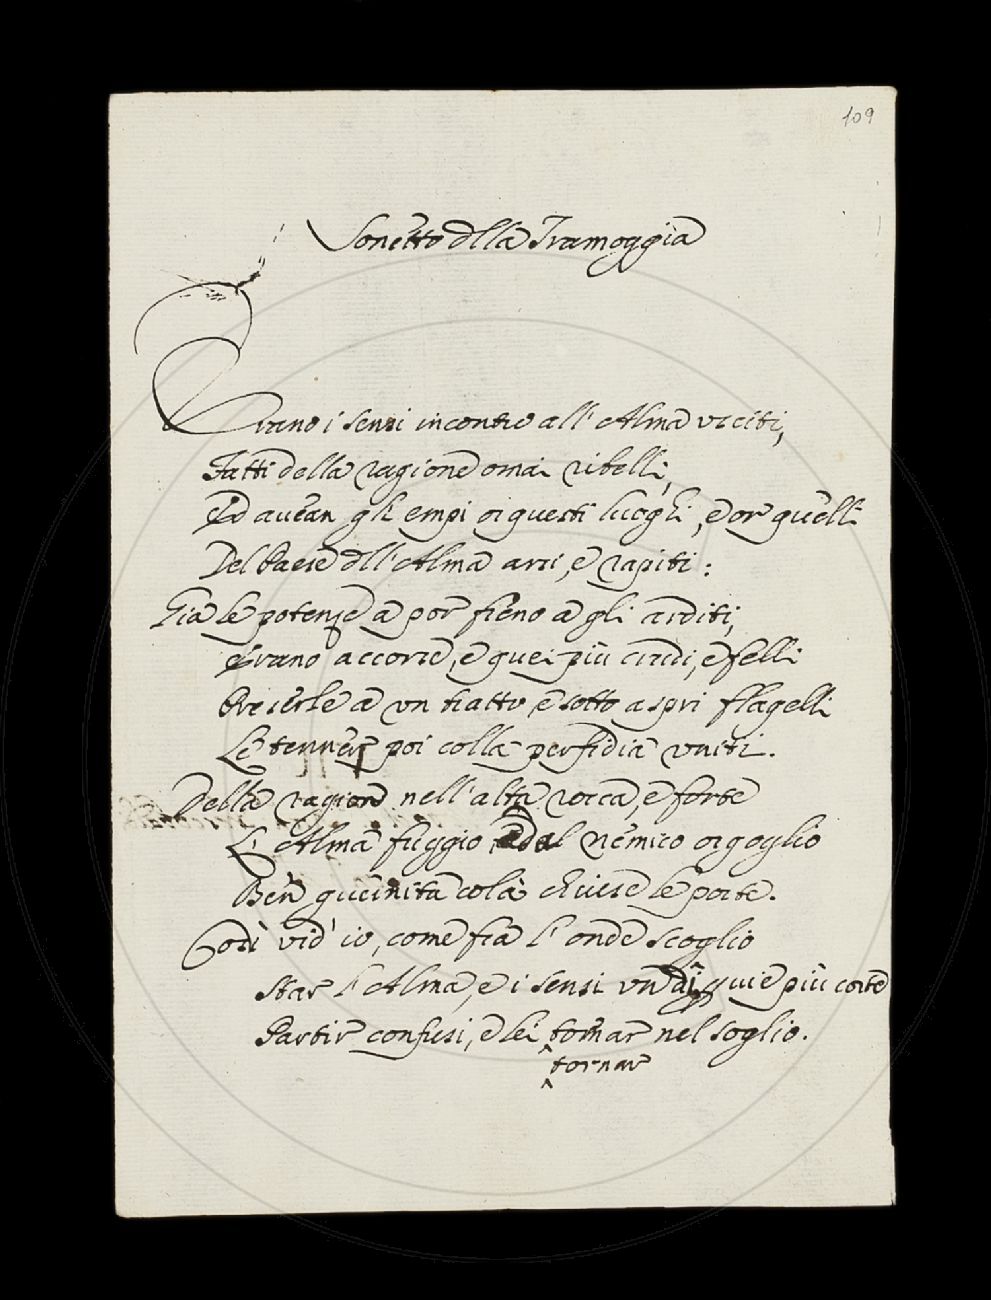 109
Sonetto dlla Tramoggia
Erano i sensi incontro all' Alma usciti,
Fatti della ragione omai ribelli,
Ed avean gli empi or questi luoghi, e or quelli
Del Paese dll' Alma arsi, e rapiti:
Già le potenze a por freno a gli arditi,
Erano accorse, e quei più crudi, e felli
Preserle a un tratto, e sotto aspri flagelli
Le tenner poi colla perfidia uniti.
Della ragion nell' alta rocca, e forte
L' Alma fuggio, e dal nemico orgoglio
Ben guernita colà chiuse le porte.
Così vid' io, come fra l' onde scoglio
Star l' Alma, e i sensi un dì, qui e più corte
Partir confusi, e lei tornar nel soglio.
tornar